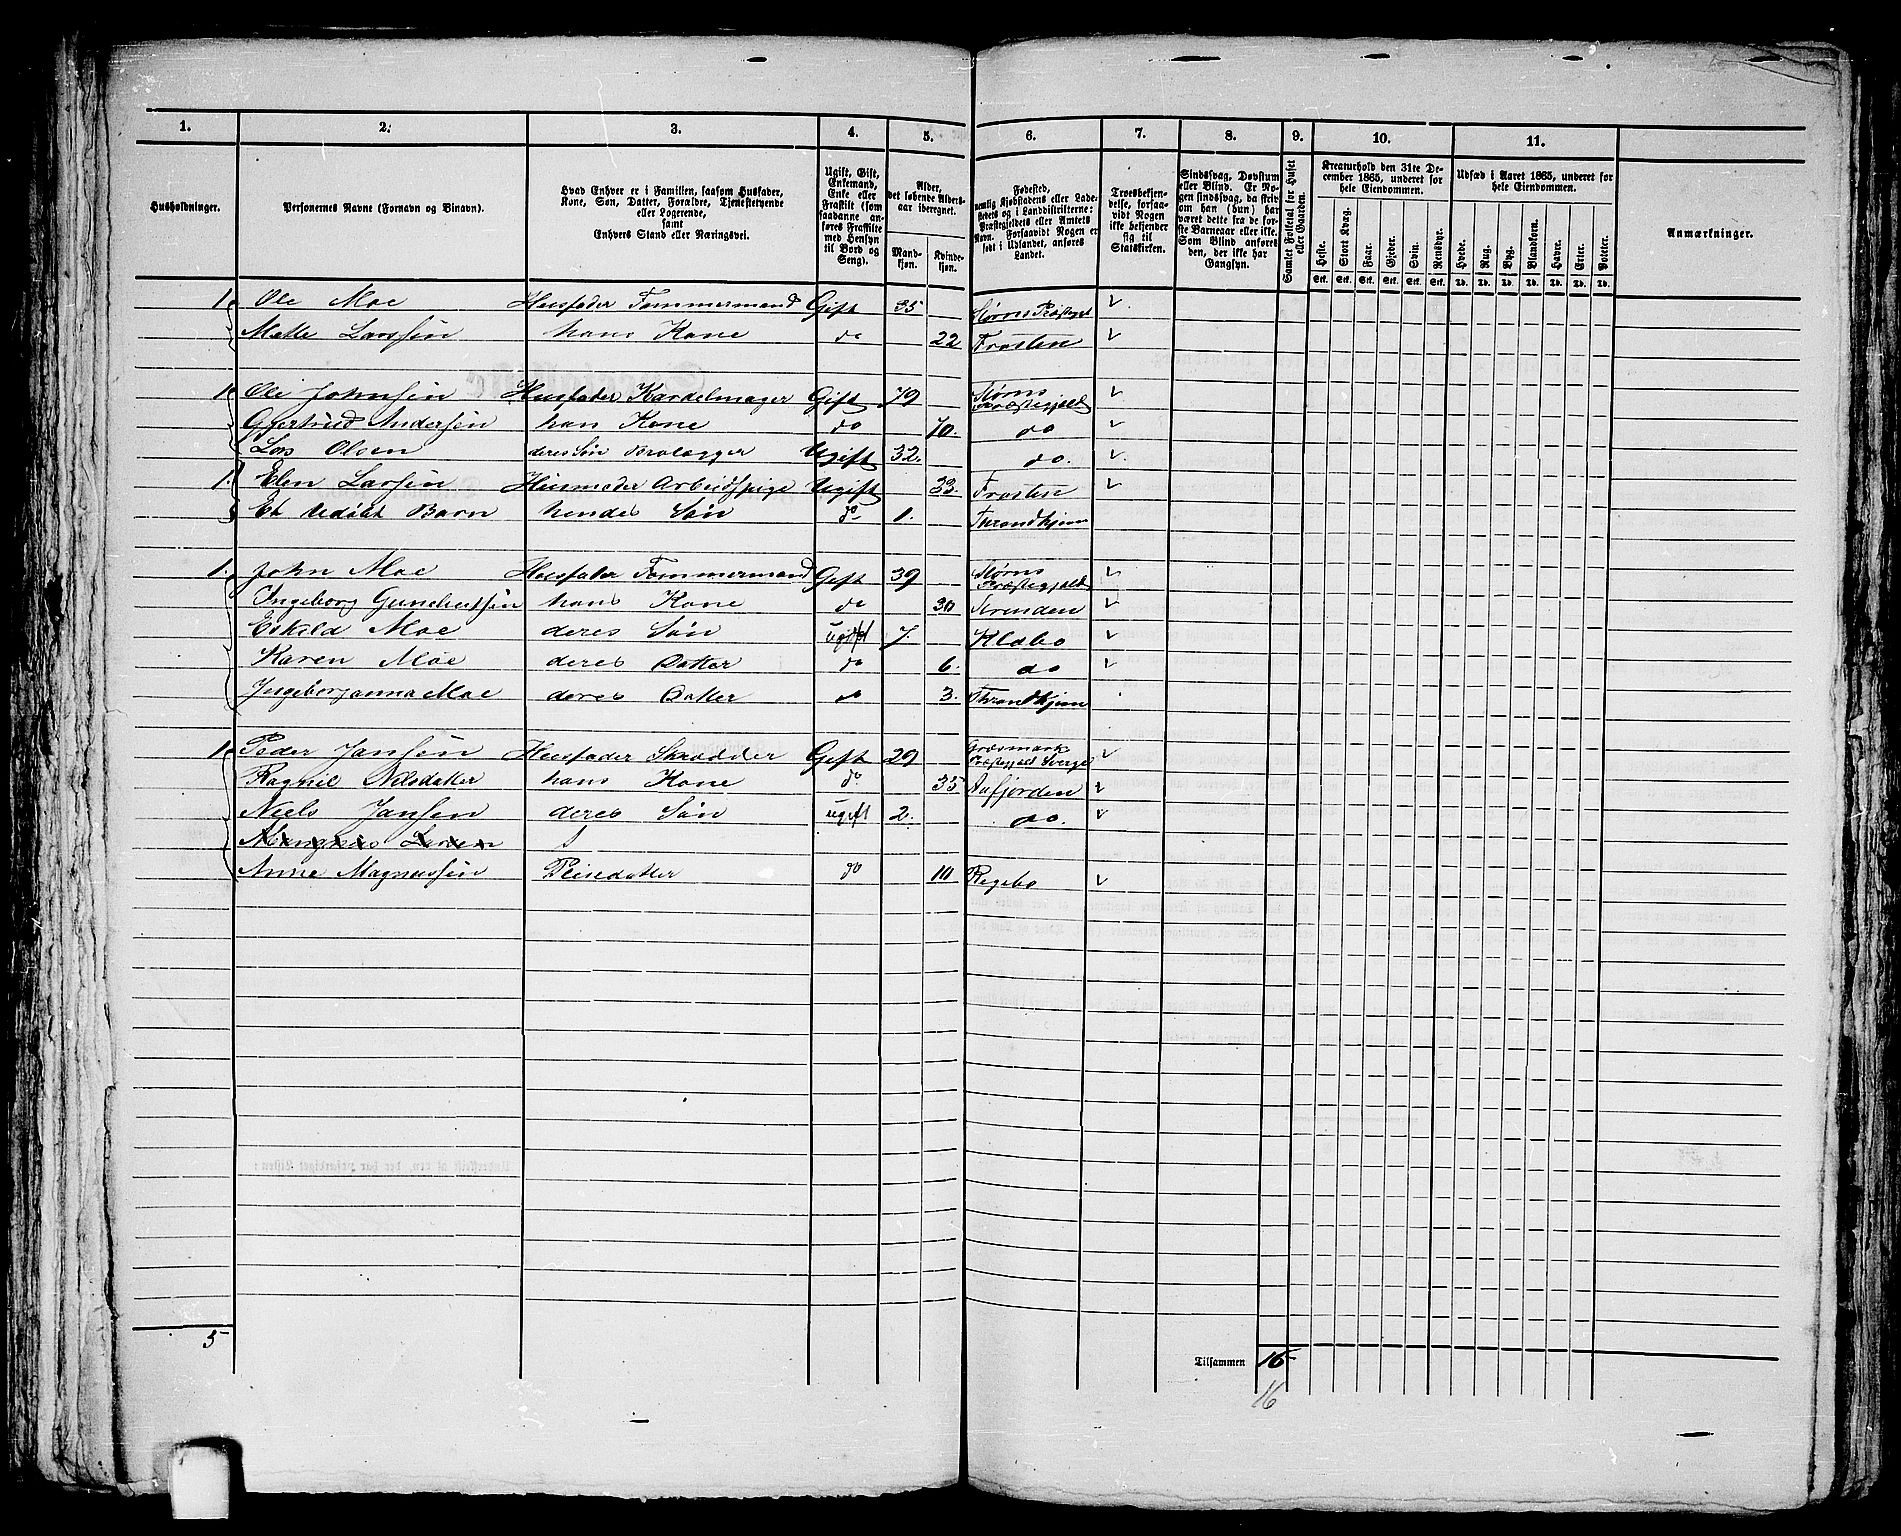 1. 2. 3. 4. 5. 6. 7. 8. 9. 10. 11.
Husholdninger.
Personernes Navne (Fornavn og Binavn).
Hvad Enhver er i Familien, saasom Husfader,
Kone, Søn, Datter, Forældre, Tjenestetyende
eller Logerende,
samt
Enhvers Stand eller Næringsvei.
Ugift, Gift,
Enkemand,
Enke eller
Fraskilt (som
saadanne an-
føres Fraskilte
med Hensyn
til Bord og
Seng).
Alder,
det løbende Alders-
aar iberegnet.
Mand-
kjøn.
Kvinde-
kjøn.
Fødested,
nemlig Kjøbstadens eller Lade-
stedets og i Landdistrikterne:
Præstegjeldets eller Amtets
Navn. Forsaavidt Nogen er
født i Udlandet, anføres
Landet.
Troesbekjen-
delse, forsaa-
vidt Nogen
ikke bekjender
sig til
Statskirken.
Sindssvag, Døvstum
eller Blind. Er No-
gen sindssvag, da skri-
ves om han (hun) har
været dette fra de før-
ste Barneaar eller ikke.
Som Blind anføres
den, der ikke har
Gangsyn.
Samlet Folketal for Huset
eller Gaarden.
Kreaturhold den 31te De-
cember 1865, underet for
hele Eiendommen.
Heste. Stort Kvæg. Faar. Gjeder. Svin. Rensdyr.
Stk. Stk. Stk. Stk. Stk. Stk.
Udsæd i Aaret 1865, underet for
hele Eiendommen.
Hvede. Rug. Byg. Blandkorn. Havre. Erter. Poteter.
Td. Td. Td. Td. Td. Td. Td.
Anmærkninger.
1. Ole Moe Huusfader Tømmermand Gift 35 Størns Præstgjel
Mette Larssen hans Kone do 22 Frosten
1 Ole Johnsen Huusfader Kardelmager Gift 79 Størns Præstegjeld
Gjertrud Andersen han Kone do 70. do
Lars Olsen deres Søn Brolægger Ugift 32. do.
1. Elen Larsen Huusmoder Arbeidspige Ugift 33. Frosten
Et Udøbt Barn hendes Søn do 1. Throndhjem
1. John Moe Huusfader Tømmermand Gift 39 Størns Præstegjeld
Ingeborg hans Kone do 30 Strinden
Eskild Moe deres Søn ugift 7. Klæbo
Karen Moe deres Datter do 6. do
Ingeborjanna Moe deres Datter do 3. Throndhjem
1 Peder Jansen Huusfader Skrædder Gift 29 Græsmark Præstegjeld Sverge
Ragnil Nilsdatter hans Kone do 35 Aafjorden
Niels Jansen deres Søn ugift 2. do.
Anne Magnussen Pleiedatter do 10
5
Tilsammen 16
16